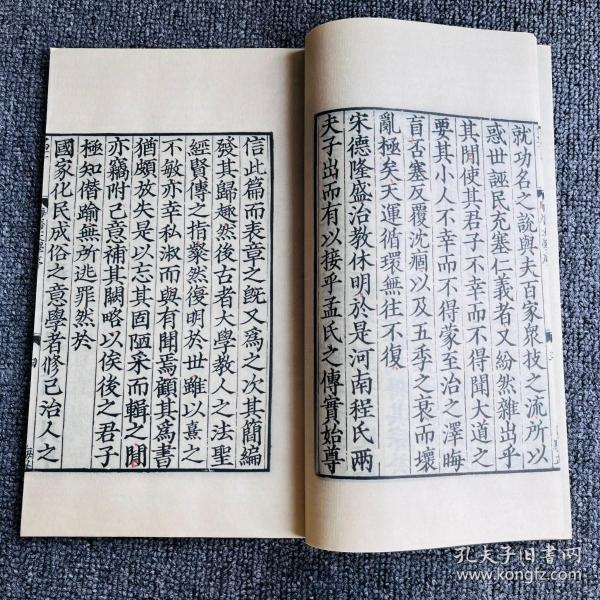 就功名之說與夫百家衆技之流所以
惑世誣民充塞仁義者又紛然雜出乎
其閒使其君子不幸而不得聞大道之
要其小人不幸而不得蒙至治之澤晦
盲否塞反覆沈痼以及五季之衰而壞
亂極矣天運循環無往不復
宋德隆盛治教休明於是河南程氏兩
夫子出而有以接乎孟氏之傳實始尊
信此篇而表章之旣又爲之次其簡編
發其歸趣然後古者大學教人之法聖
經賢傳之指粲然復明於世雖以熹之
不敏亦幸私淑而與有聞焉顧其爲書
猶頗放失是以忘其固陋采而輯之閒
亦竊附己意補其闕略以俟後之君子
極知僭踰無所逃罪然於
國家化民成俗之意學者修己治人之
孔夫子旧书网
www.kongfz.com